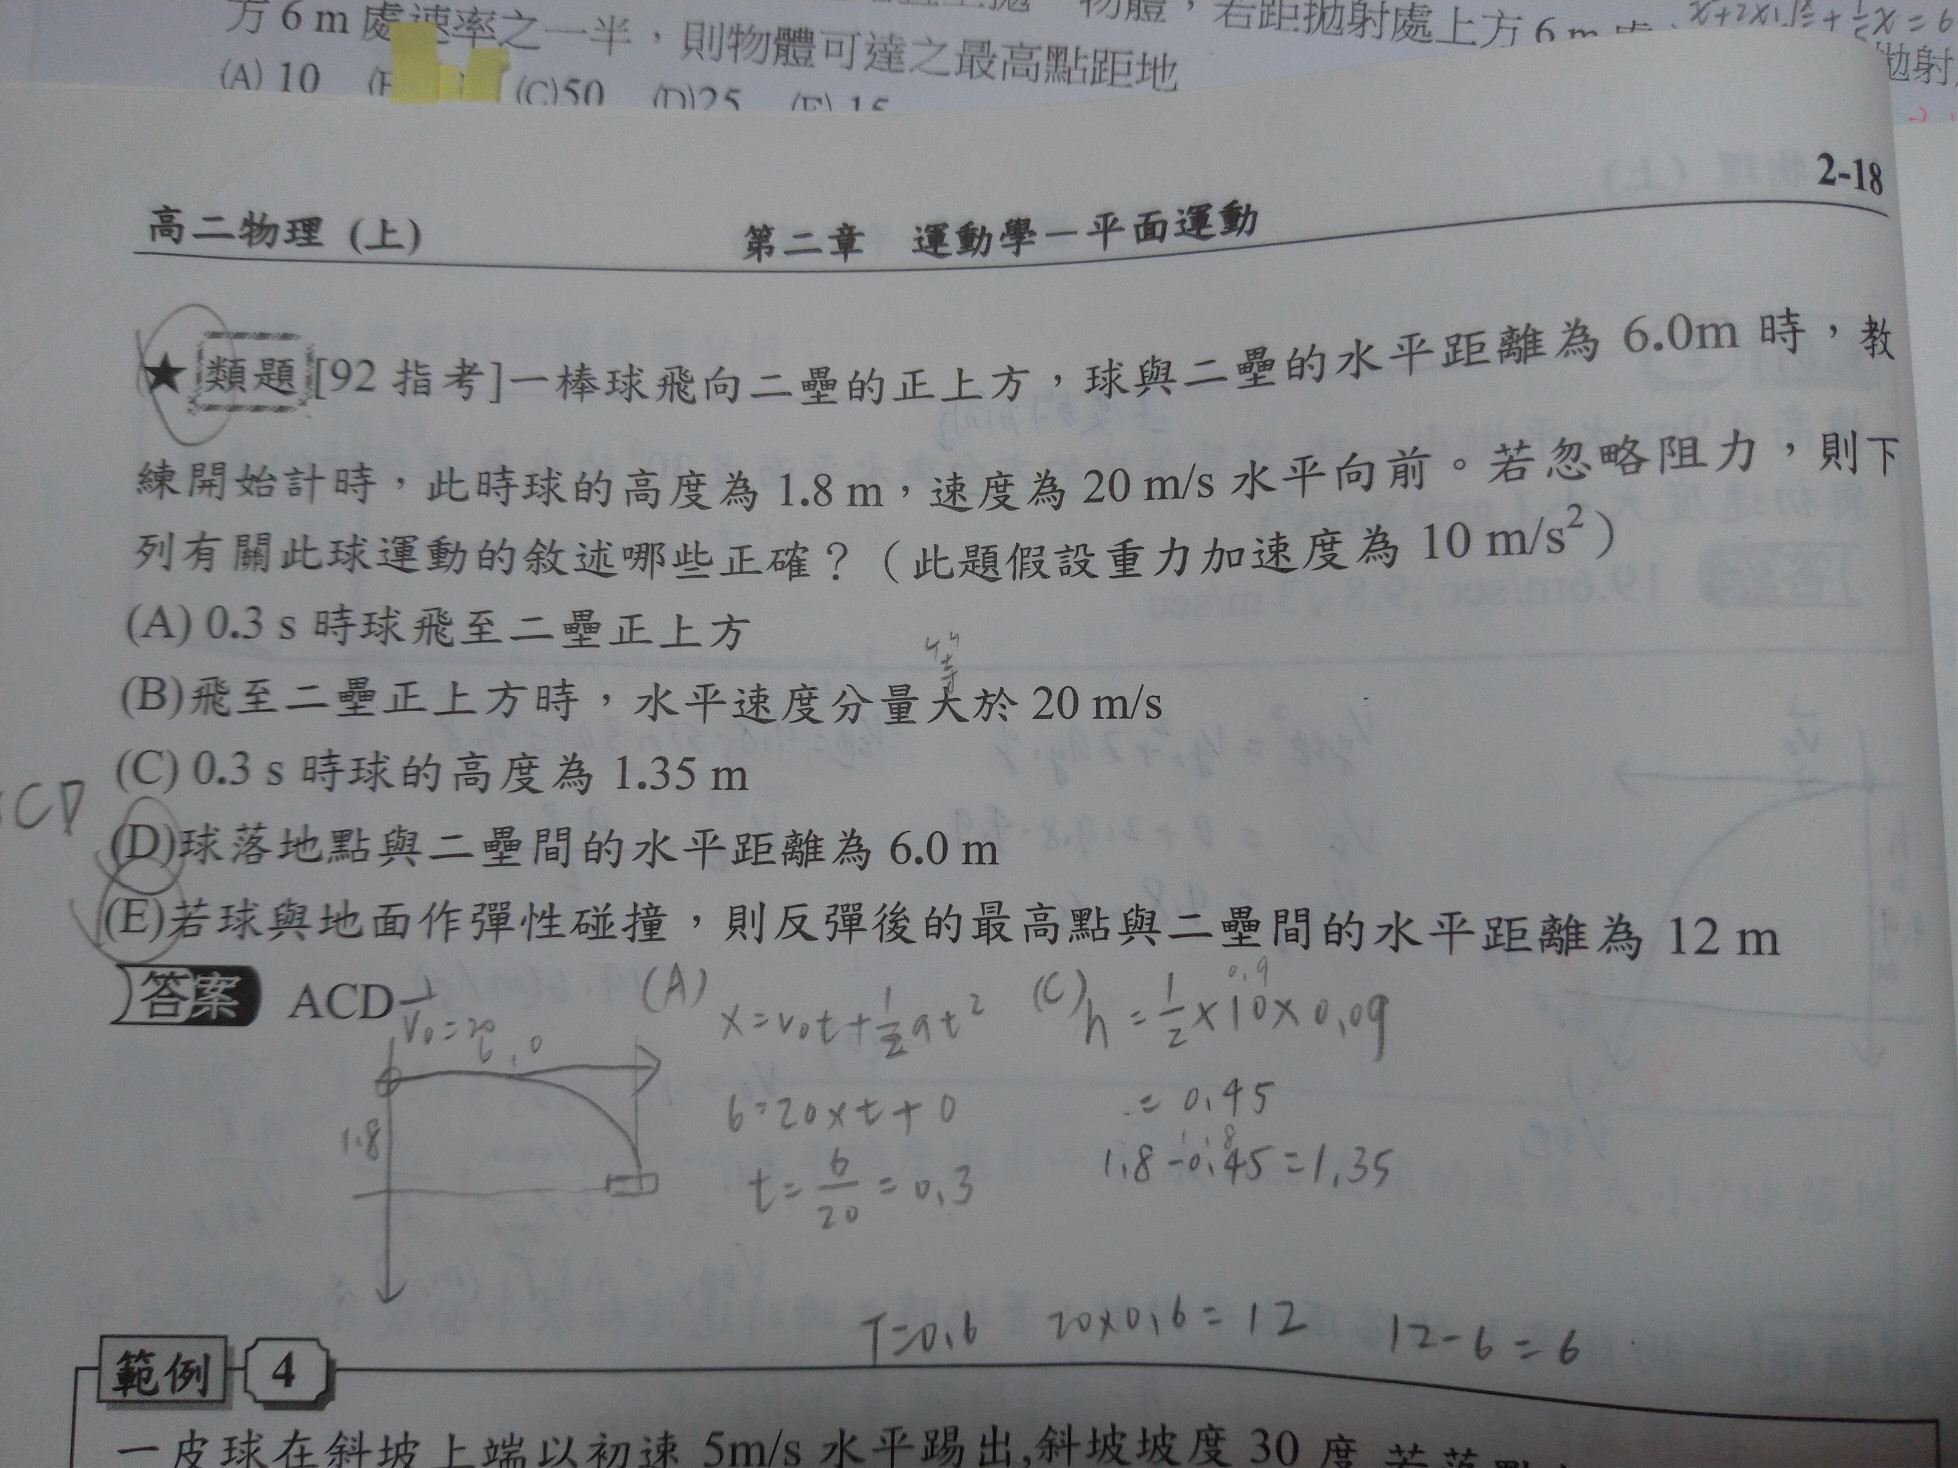 方 6 m 處速率之一半，則物體可達之最高點距地
物體，若距拋射處上方 6 m
拋射
(A) 10 (C)50 (D)25 (E) 15
2-18
高二物理 (上) 第二章 運動學－平面運動
★ 類題 [92 指考]一棒球飛向二壘的正上方，球與二壘的水平距離為 6.0m 時，教
練開始計時，此時球的高度為 1.8 m，速度為 20 m/s 水平向前。若忽略阻力，則下
列有關此球運動的敘述哪些正確？（此題假設重力加速度為 10 m/s²）
(A) 0.3 s 時球飛至二壘正上方
等
(B)飛至二壘正上方時，水平速度分量大於 20 m/s
(C) 0.3 s 時球的高度為 1.35 m
CD
(D)球落地點與二壘間的水平距離為 6.0 m
(E)若球與地面作彈性碰撞，則反彈後的最高點與二壘間的水平距離為 12 m
答案 ACD
V₀=20
1.8
(A) x=v₀t+½at²
6=20×t+0
t=6/20=0.3
(C) h=½×10×0.09
0.9
=0.45
1.8-0.45=1.35
T=0.6 20×0.6=12 12-6=6
範例 4
一皮球在斜坡上端以初速 5m/s 水平踢出,斜坡坡度 30 度